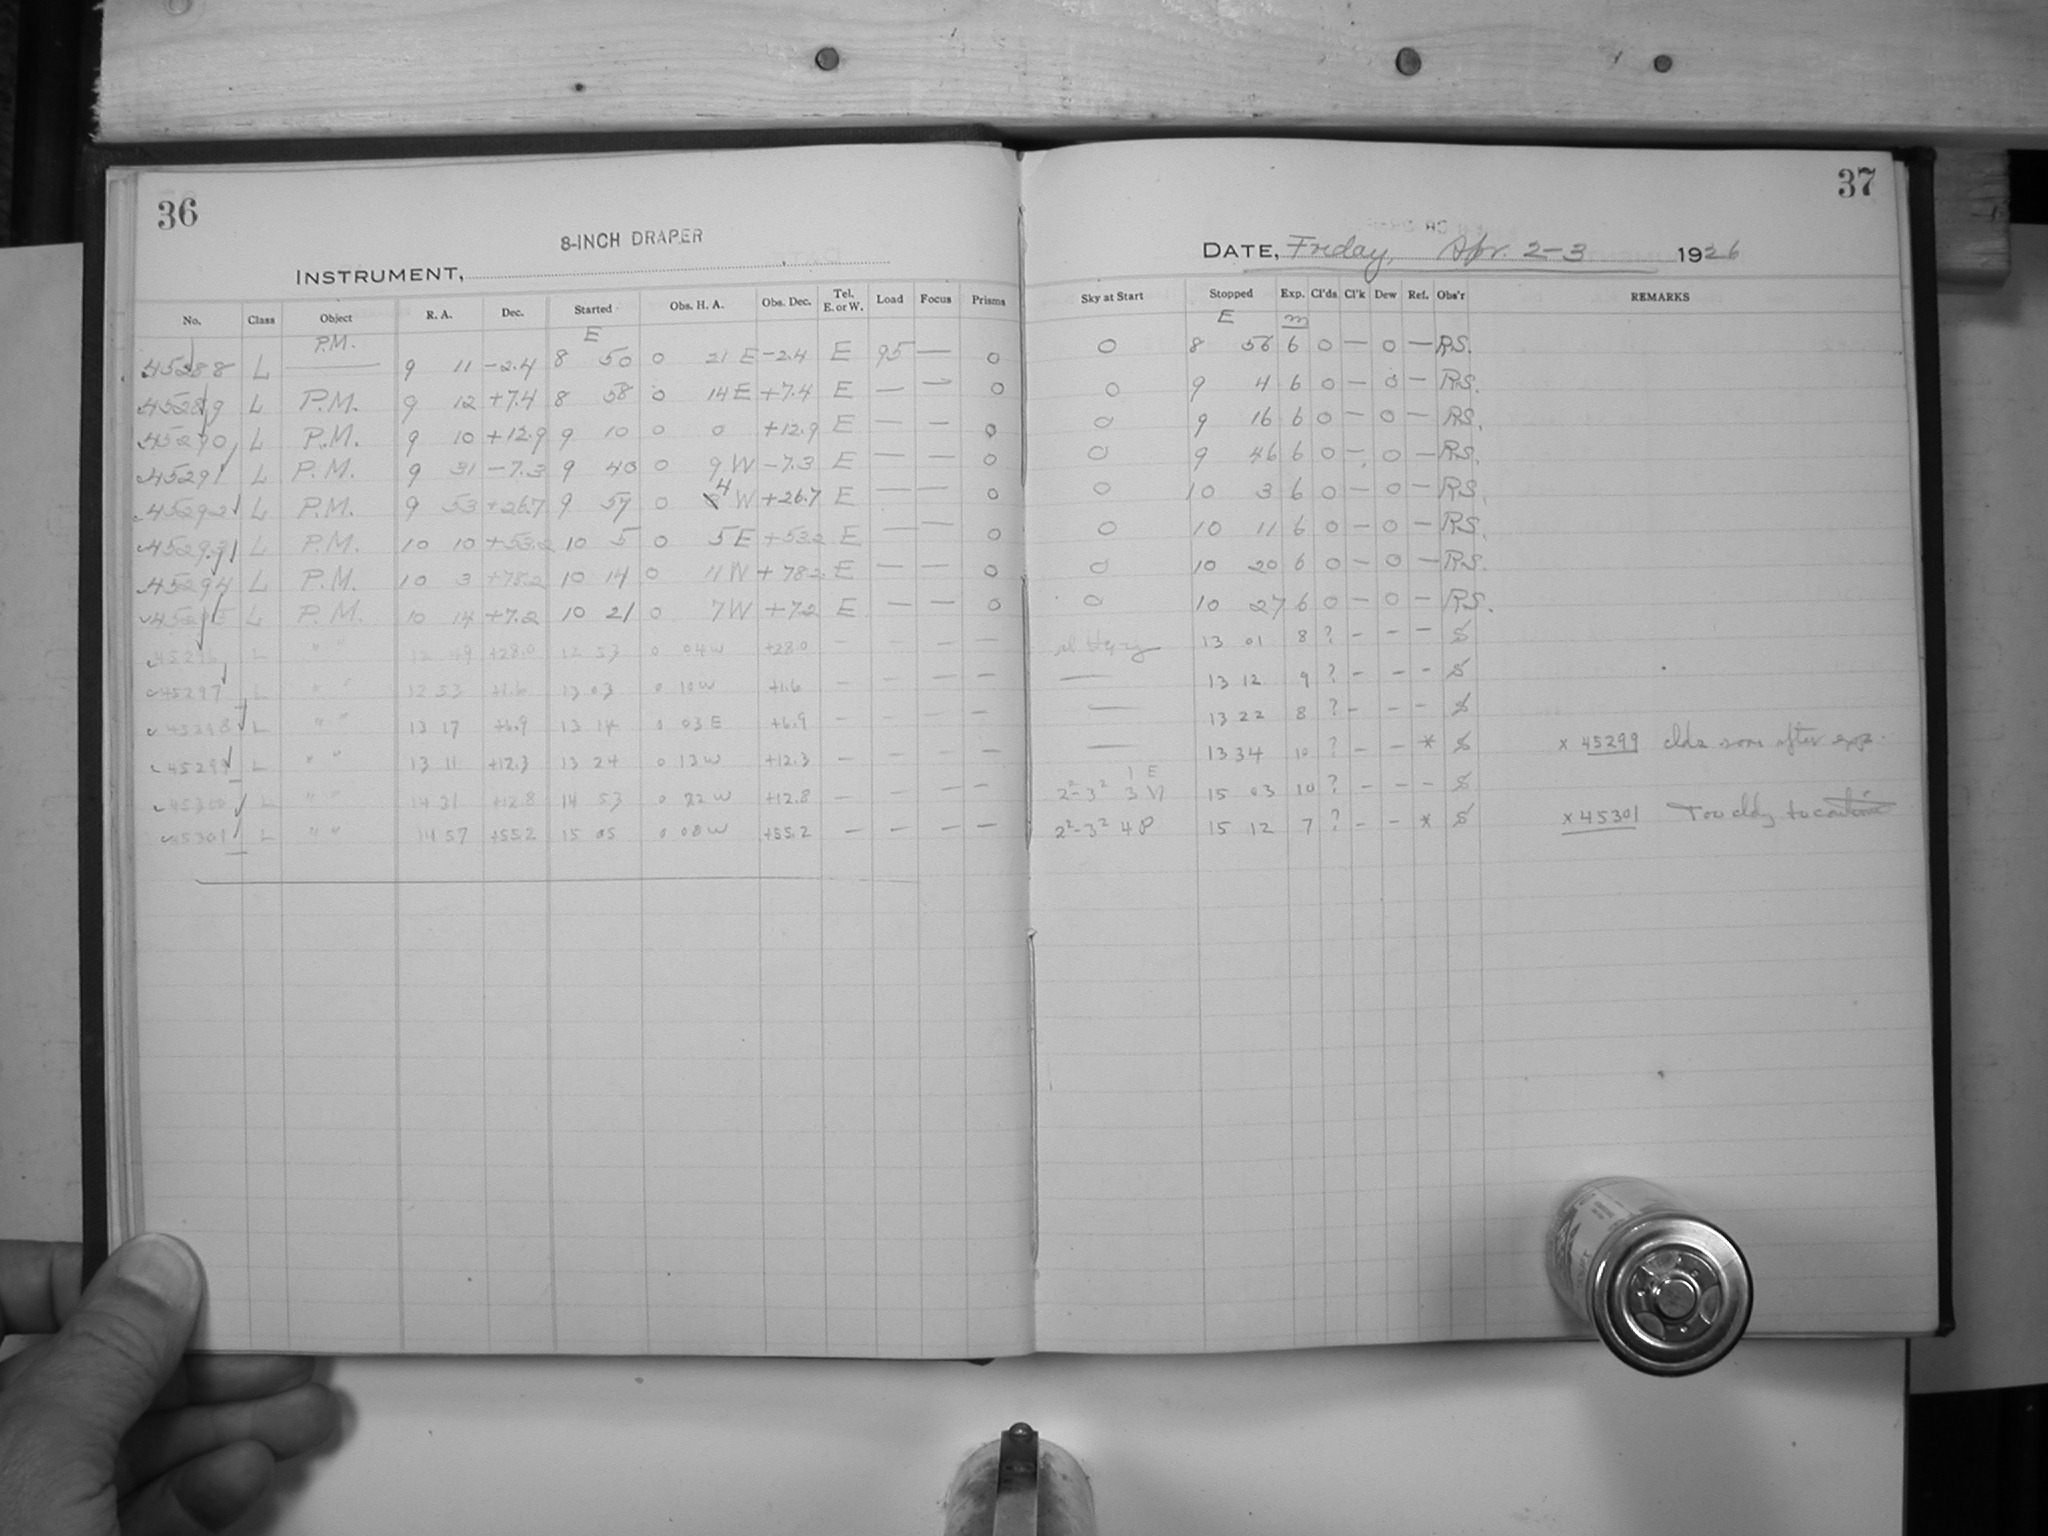 36
8-INCH DRAPER
INSTRUMENT,
No. Class Object R. A. Dec. Started Obs. H. A. Obs. Dec. Tel. E. or W. Load Focus Prisms
E
P.M.
45288 L 9 11 -2.4 8 50 0 21 E -2.4 E 95 — 0
45289 L P.M. 9 12 +7.4 8 58 0 14 E +7.4 E — — 0
45290 L P.M. 9 10 +12.9 9 10 0 0 +12.9 E — — 0
45291 L P.M. 9 31 -7.3 9 40 0 9 W -7.3 E — — 0
45292 L P.M. 9 53 +26.7 9 57 0 4 W +26.7 E — — 0
45293 L P.M. 10 10 +53.2 10 5 0 5 E +53.2 E — — 0
45294 L P.M. 10 3 +78.2 10 14 0 11 W +78.2 E — — 0
45295 L P.M. 10 14 +7.2 10 21 0 7 W +7.2 E — — 0
45296 L " " 12 49 +28.0 12 53 0 04 W +28.0 — — — —
45297 L " " 12 53 +1.6 13 03 0 10 W +1.6 — — — —
45298 L " " 13 17 +6.9 13 14 0 03 E +6.9 — — — —
45299 L " " 13 11 +12.3 13 24 0 13 W +12.3 — — — —
45300 L " " 14 31 +12.8 14 53 0 22 W +12.8 — — — —
45301 L " " 14 57 +55.2 15 05 0 08 W +55.2 — — — —
37
DATE, Friday, Apr. 2-3 1926
Sky at Start Stopped Exp. Cl'ds Cl'k Dew Ref. Obs'r REMARKS
E m
0 8 56 6 0 — 0 — R.S.
0 9 4 6 0 — 0 — R.S.
0 9 16 6 0 — 0 — R.S.
0 9 46 6 0 — 0 — R.S.
0 10 3 6 0 — 0 — R.S.
0 10 11 6 0 — 0 — R.S.
0 10 20 6 0 — 0 — R.S.
0 10 27 6 0 — 0 — R.S.
13 01 8 ? - - - S
— 13 12 9 ? - - - S
— 13 22 8 ? - - - S
— 13 34 10 ? - - * S x 45299 clds soon after exp.
1 E
2²-3² 3 V 15 03 10 ? - - - S
2²-3² 4 P 15 12 7 ? - - * S x 45301 Too cldy to continue